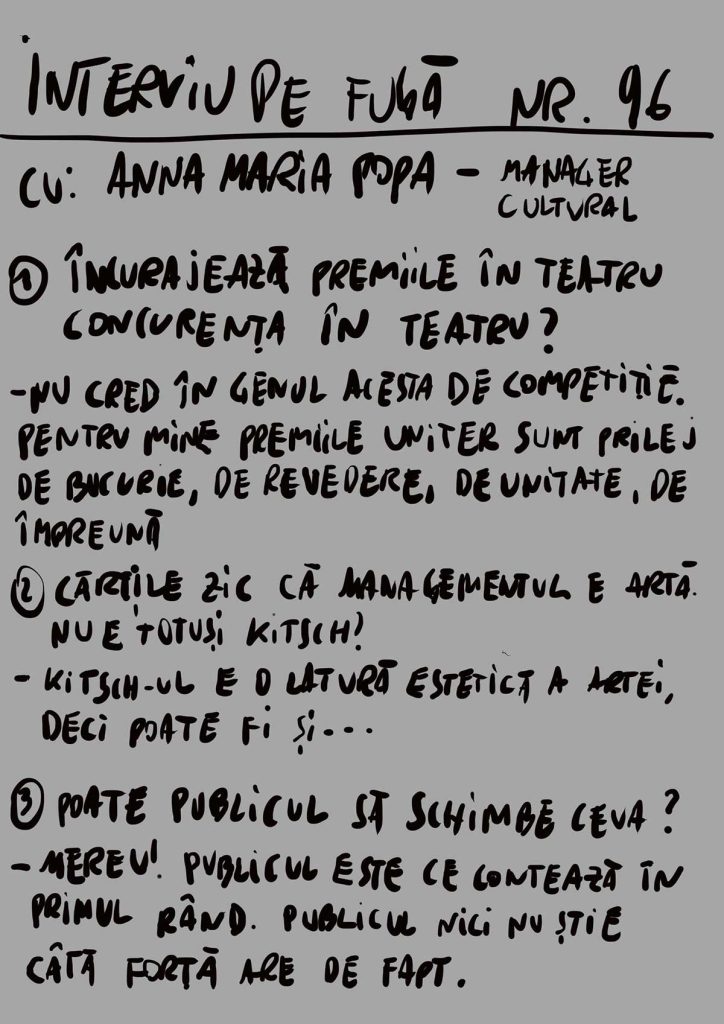 INTERVIU PE FUGĂ NR. 96
CU: ANNA MARIA POPA - MANAGER
CULTURAL
① ÎNCURAJEAZĂ PREMIILE ÎN TEATRU
CONCURENȚA ÎN TEATRU?
-NU CRED ÎN GENUL ACESTA DE COMPETIȚIE.
PENTRU MINE PREMIILE UNITER SUNT PRILEJ
DE BUCURIE, DE REVEDERE, DE UNITATE, DE
ÎMPREUNĂ
② CĂRȚILE ZIC CĂ MANAGEMENTUL E ARTĂ.
NU E TOTUȘI KITSCH?
- KITSCH-UL E O LATURĂ ESTETICĂ A ARTEI,
DECI POATE FI ȘI...
③ POATE PUBLICUL SĂ SCHIMBE CEVA?
- MEREU! PUBLICUL ESTE CE CONTEAZĂ ÎN
PRIMUL RÂND. PUBLICUL NICI NU ȘTIE
CÂTĂ FORȚĂ ARE DE FAPT.